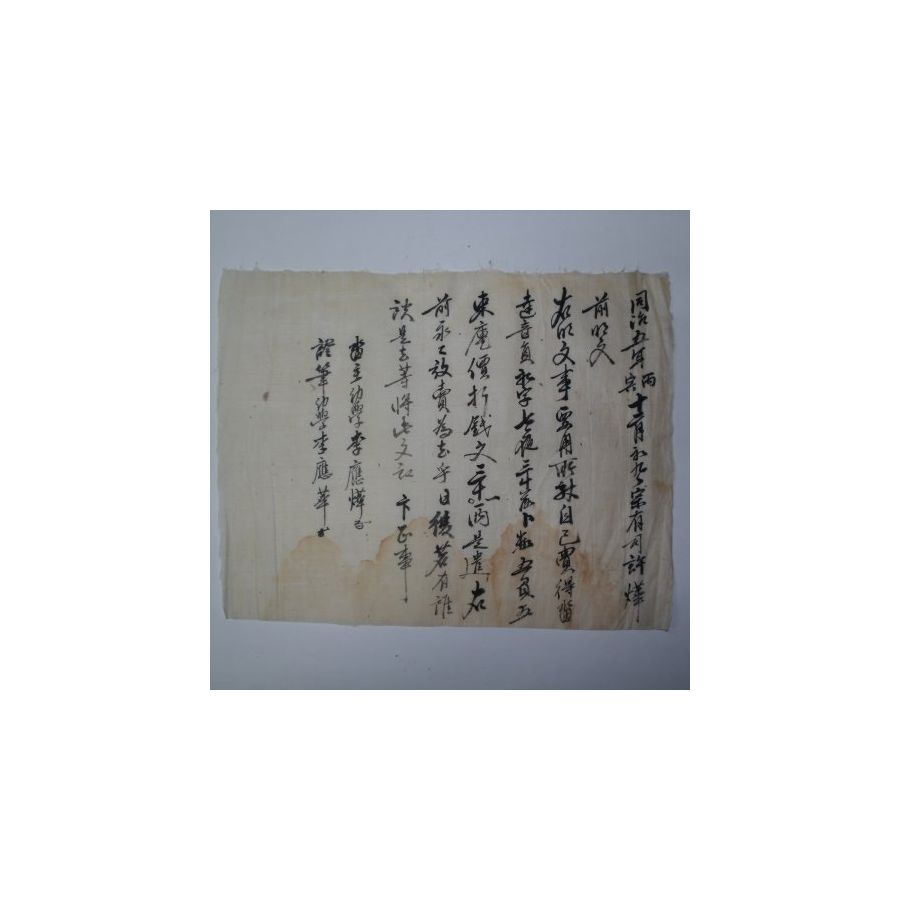 同治五年丙寅十二月初九日宗有司許燁
前明文
右明文事要用所致自己買得畓
達音員 字 夜三斗落卜 五負五
束庫價折錢文三十兩是遣右
前永永放賣為去乎日後若有雜
談是去等將此文記卞正事
畓主幼學李應燁
證筆幼學李應華